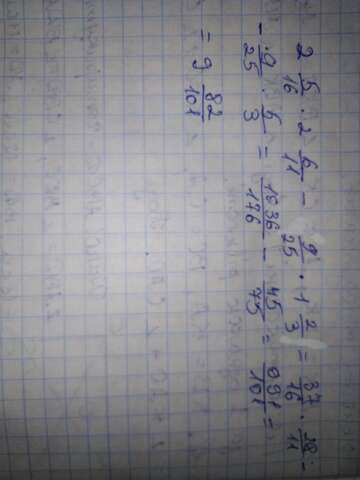 2 5/16 · 2 6/11 − 9/25 · 1 2/3 = 37/16 · 28/11 −
− 9/25 · 5/3 = 1036/176 − 45/75 = 991/101 =
= 9 82/101